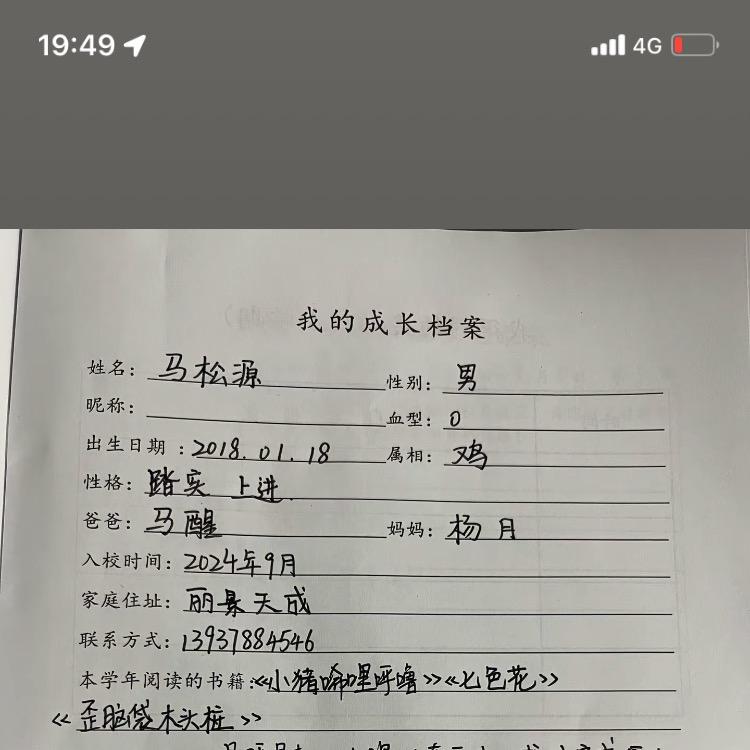 19:49 4G
我的成长档案
姓名: 马松源 性别: 男
昵称: 血型: O
出生日期: 2018.01.18 属相: 鸡
性格: 踏实 上进
爸爸: 马醒 妈妈: 杨月
入校时间: 2024年9月
家庭住址: 丽景天成
联系方式: 13937884546
本学年阅读的书籍:《小猪唏哩呼噜》《七色花》
《歪脑袋木头桩》